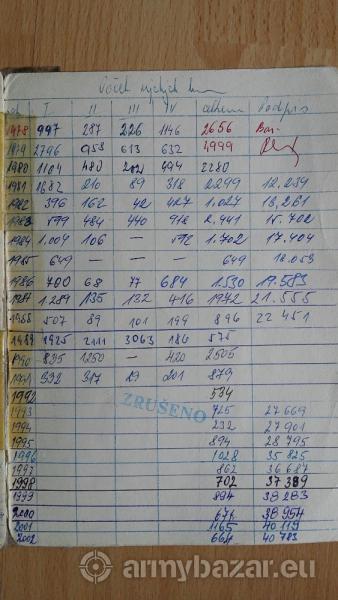 Počet
I II III IV celkem Podpis
1978 997 287 226 1146 2656
1979 2796 958 613 632 4999
1980 1104 480 494 2280
1981 1682 210 89 318 2299 12.234
1982 396 162 42 427 1.027 13,261
1983 599 484 440 918 2.441 15.702
1984 1.004 106 — 592 1.702 17.404
1985 649 — — 649 18.053
1986 700 68 77 684 1.530 19.583
1987 1.289 135 132 416 1972 21.555
1988 507 89 101 199 896 22 451
1989 1925 2111 3063 186 575
1990 835 1250 — 420 2505
1991 332 317 29 201 879
1992 534
ZRUŠENO
1993 725 27 669
1994 232 27 901
1995 894 28 795
1996 1028 35 825
1997 862 36 687
1998 702 37 389
1999 894 38 283
2000 671 38 954
2001 1165 40 119
2002 664 40 783
armybazar.eu